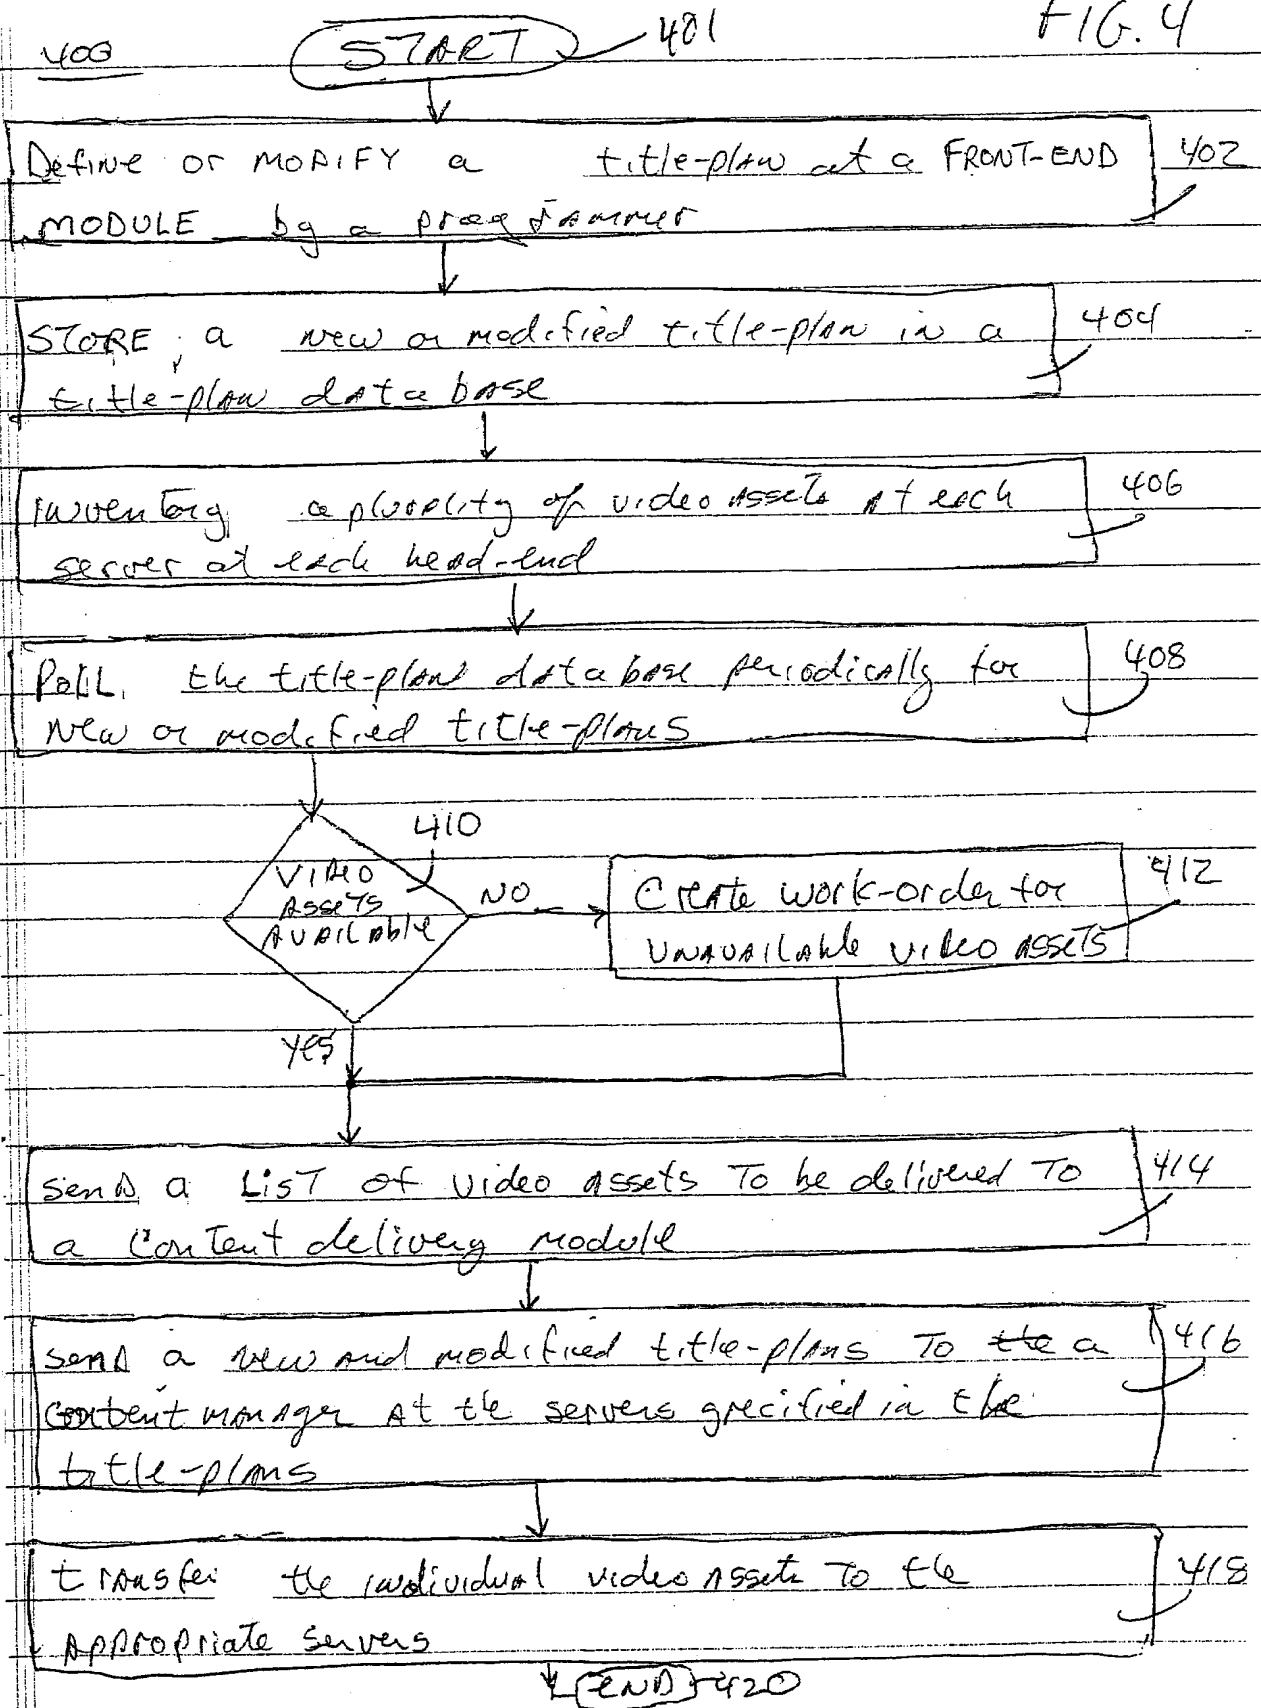 FIG. 4
400
START
401
Define or MODIFY a title-plan at a FRONT-END
MODULE by a programmer
402
STORE, a new or modified title-plan in a
title-plan data base
404
inventory a plurality of video assets at each
server at each head-end
406
Poll the title-plan data base periodically for
new or modified title-plans
408
410
VIDEO
Assets
AVAILable
NO
Create work-order for
UNAVAILable video assets
412
yes
send a LIST of video assets To be delivered To
a Content delivery module
414
send a new and modified title-plans To the a
content manager at the servers specified in the
title-plans
416
transfer the individual video assets to the
appropriate servers
418
END
420